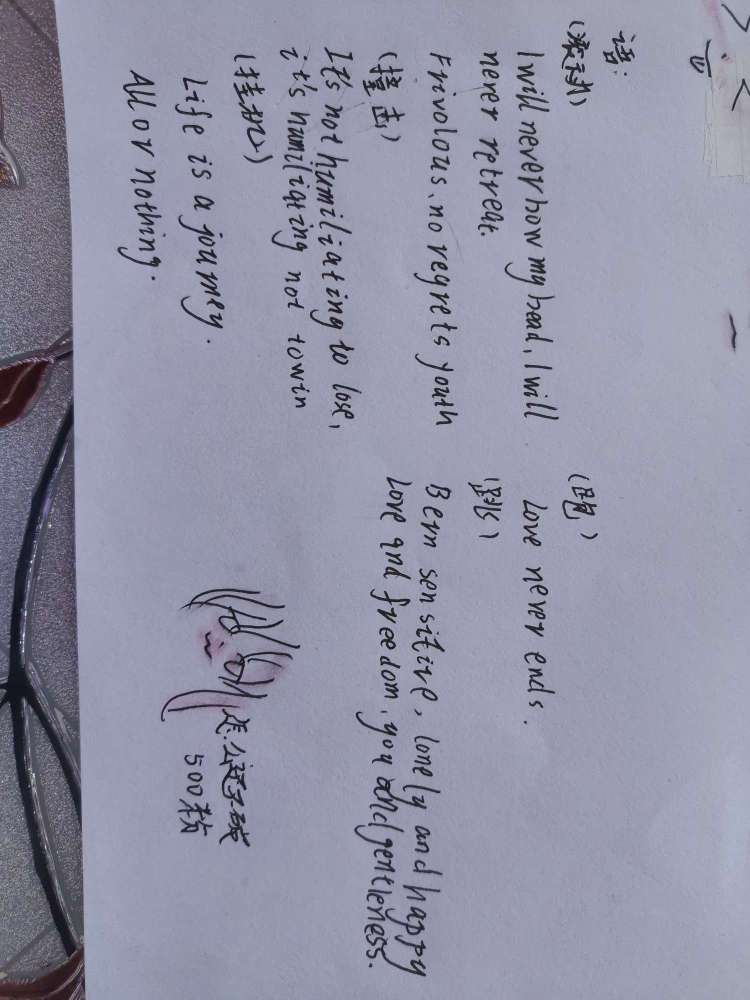 语:
I will never bow my head, I will
never retreat.
Frivolous, no regrets youth
(撞击)
It's not humiliating to lose,
it's humiliating not to win
(挂机)
Life is a journey.
All or nothing.
Love never ends.
(跳)
Bern sensitive, lonely and happy
Love and freedom, you and gentleness.
500